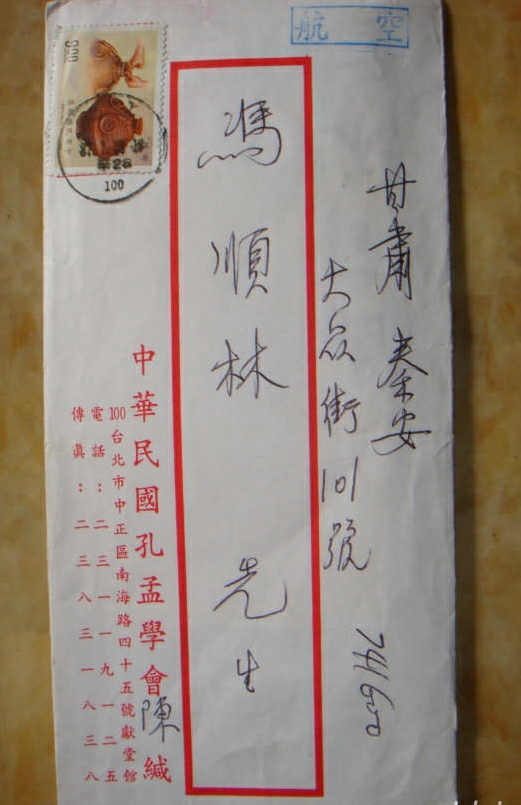 航空
甘肅 秦安
大众街101號
741600
馮順林 先生
中華民國孔孟學會陳緘
100台北市中正區南海路四十五號獻堂館
電話：二三一一九一二五
傳眞：二三八三一八三八
900
100